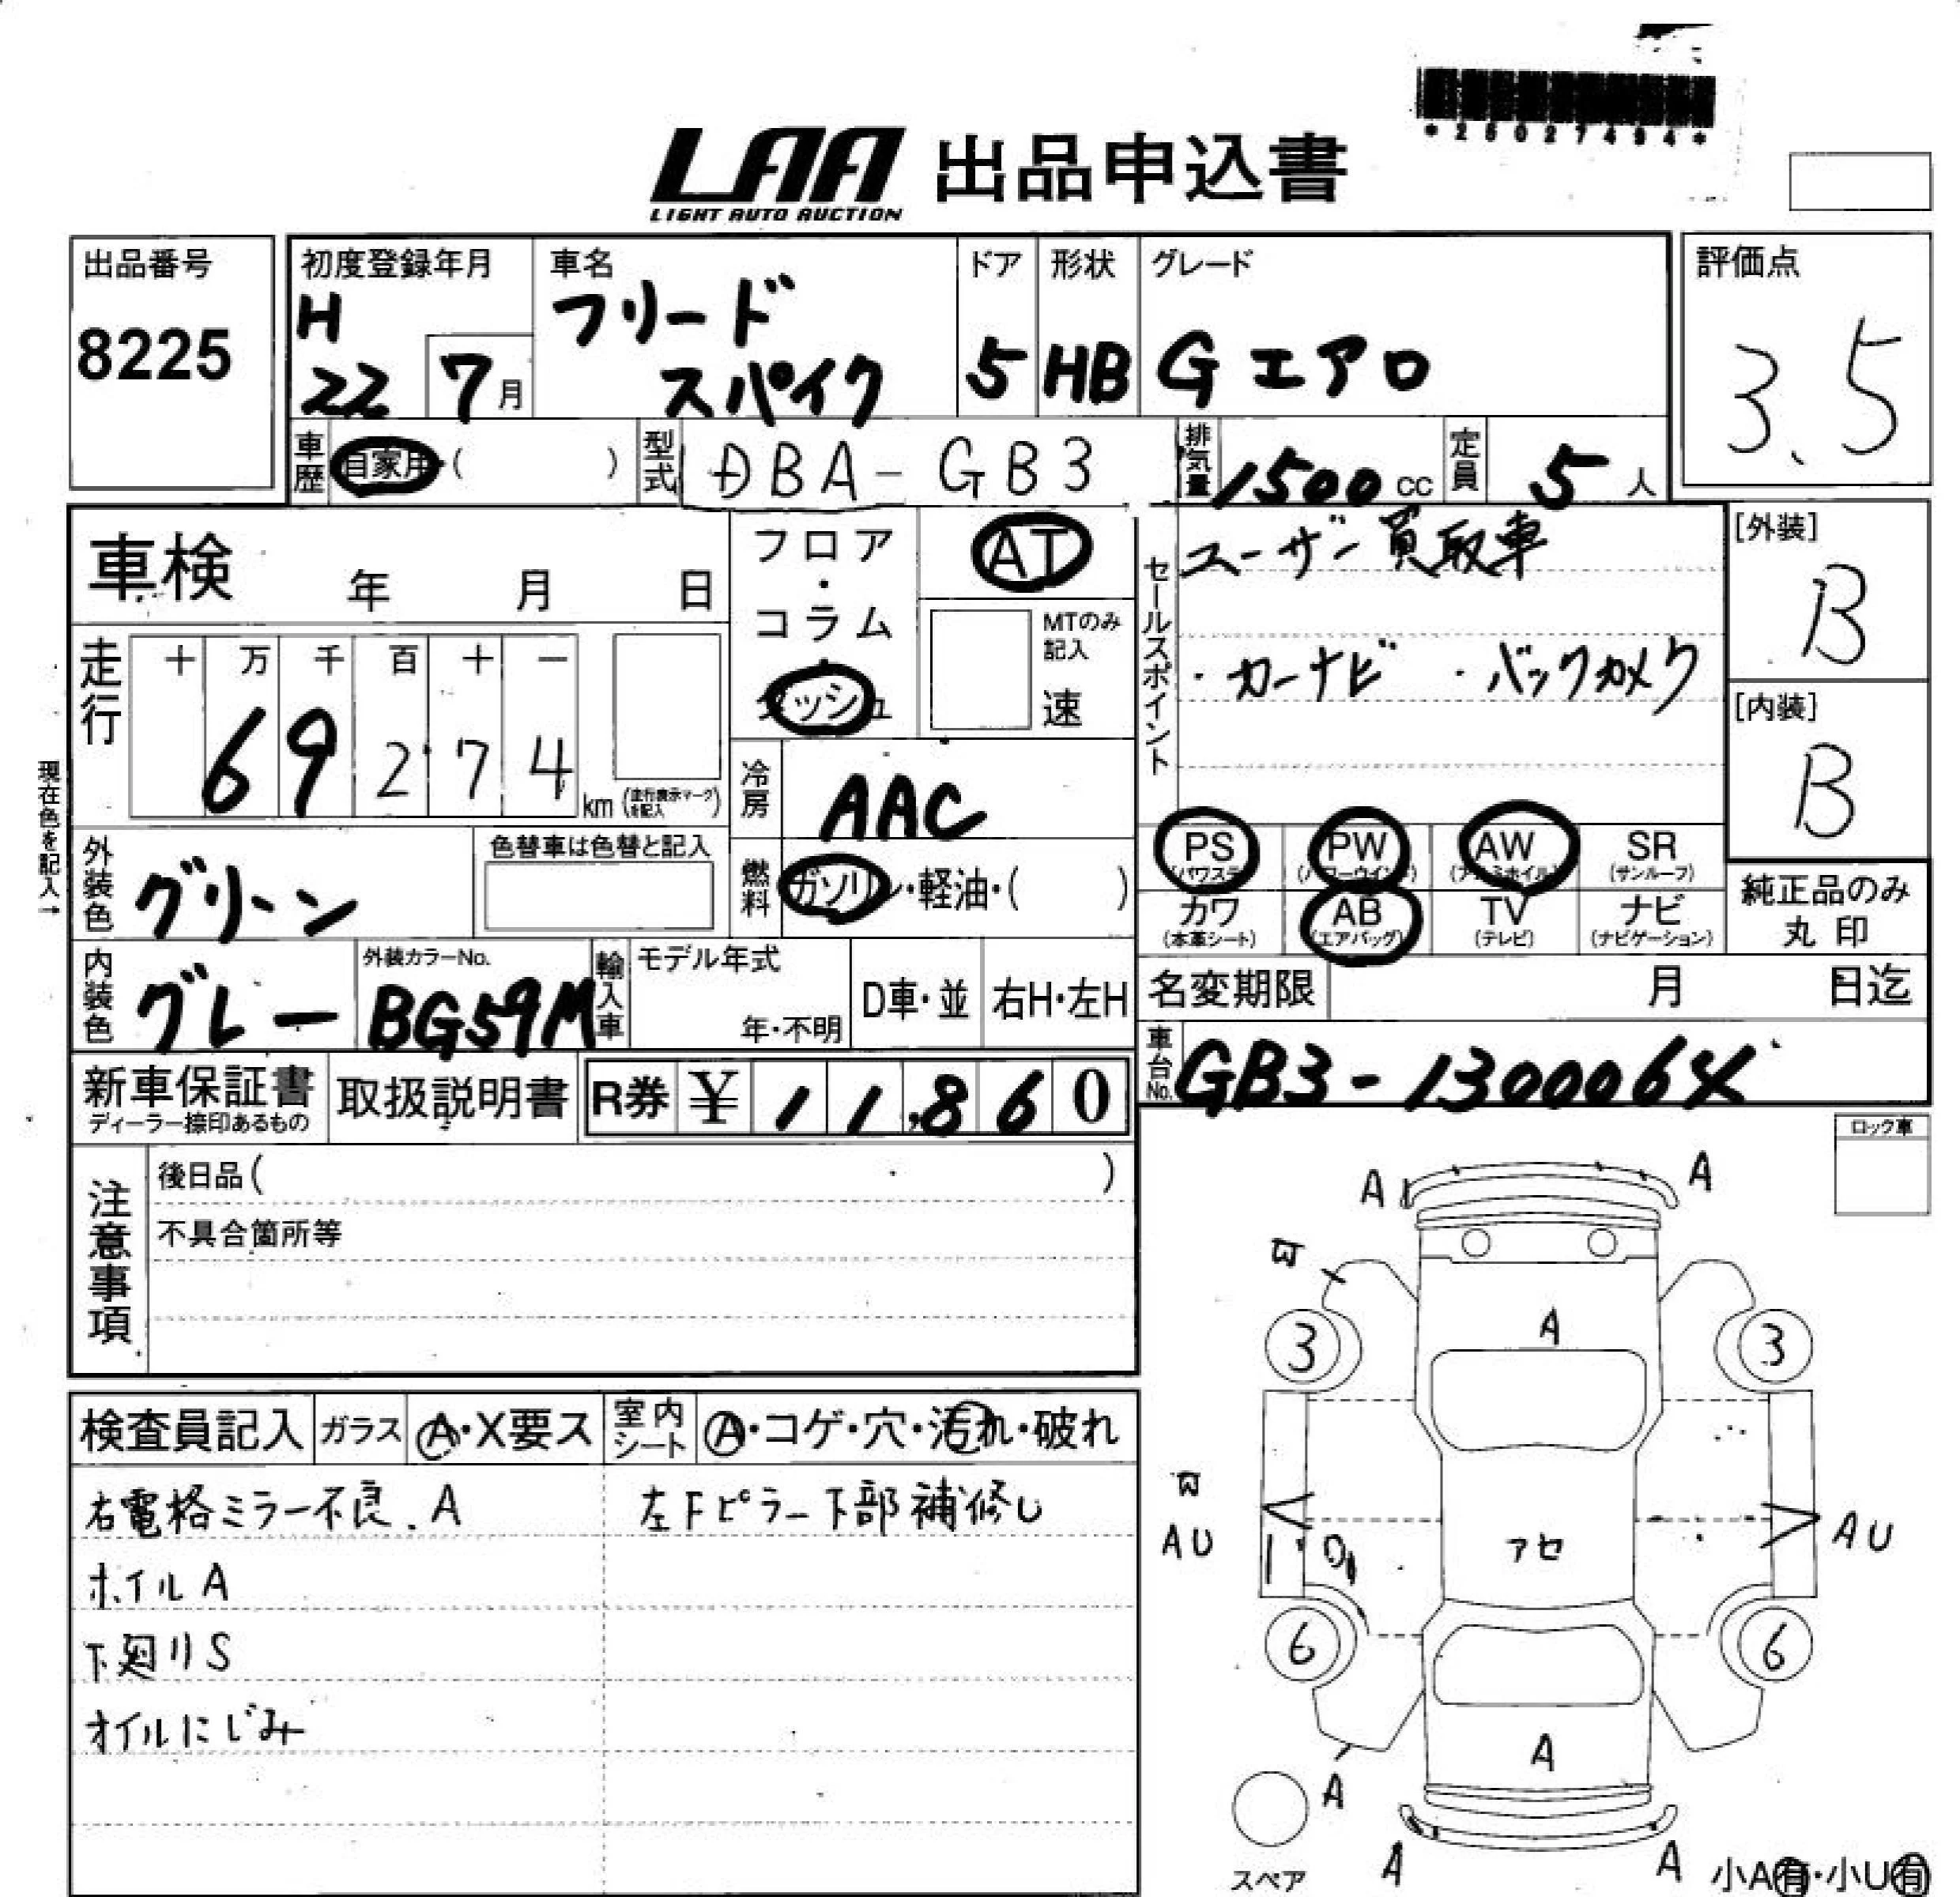 *25027494*
LAA 出品申込書
LIGHT AUTO AUCTION
出品番号
8225
初度登録年月
H
22 7月
車名
フリード
スパイク
ドア
5
形状
HB
グレード
G エアロ
評価点
3.5
車歴
自家用・( )
型式
DBA-GB3
排気量
1500 cc
定員
5 人
車検 年 月 日
フロア
・
コラム
・
ダッシュ
AT
MTのみ
記入
速
走行
十 万 千 百 十 一
6 9 2 7 4
km (走行表示マークを記入)
現在色を記入→
冷房
AAC
外装色
グリーン
色替車は色替と記入
燃料
ガソリン・軽油・( )
内装色
グレー
外装カラーNo.
BG59M
輸入車
モデル年式
年・不明
D車・並
右H・左H
セールスポイント
ユーザー買取車
・カーナビ ・バックカメラ
[外装]
B
[内装]
B
PS
(パワステ)
PW
(パワーウインド)
AW
(アルミホイル)
SR
(サンルーフ)
カワ
(本革シート)
AB
(エアバッグ)
TV
(テレビ)
ナビ
(ナビゲーション)
純正品のみ
丸印
名変期限 月 日迄
車台No.
新車保証書
ディーラー捺印あるもの
取扱説明書
R券 ¥ 11,860
注意事項
後日品( )
不具合箇所等
ロック車
検査員記入
ガラス
A・X要ス
室内シート
A・コゲ・穴・汚れ・破れ
右電格ミラー不良. A
左Fピラー下部補修U
ホイルA
下廻りS
オイルにじみ
A A
3 A 3
AU アセ AU
6 6
A
A
スペア
A A
小A有・小U有